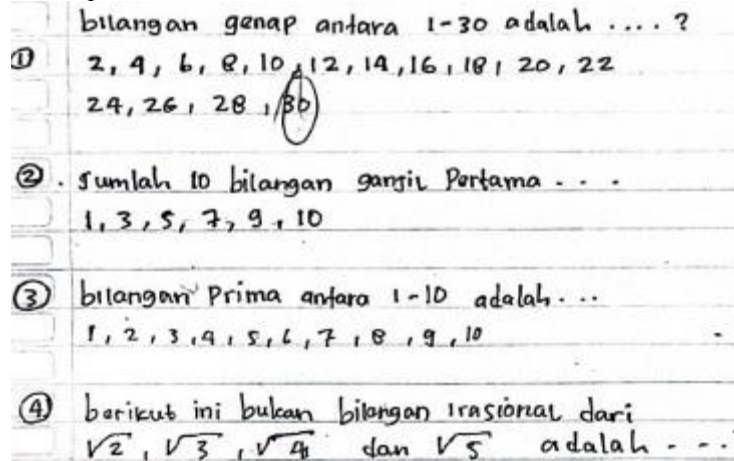 bilangan genap antara 1-30 adalah .... ?
① 2, 4, 6, 8, 10, 12, 14, 16, 18, 20, 22
24, 26, 28, 30
②. Jumlah 10 bilangan ganjil Pertama ...
1, 3, 5, 7, 9, 10
③ bilangan Prima antara 1-10 adalah...
1, 2, 3, 4, 5, 6, 7, 8, 9, 10
④ berikut ini bukan bilangan irasional dari
√2, √3, √4 dan √5 adalah ...